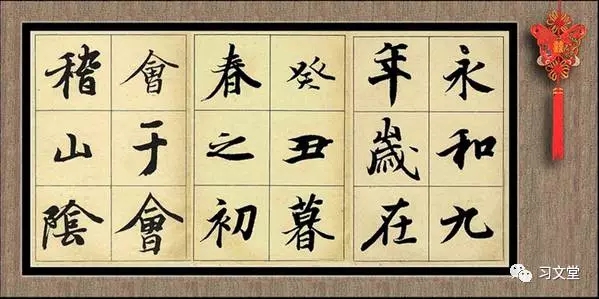 永和九
年歲在
癸丑暮
春之初
會于會
稽山陰
习文堂